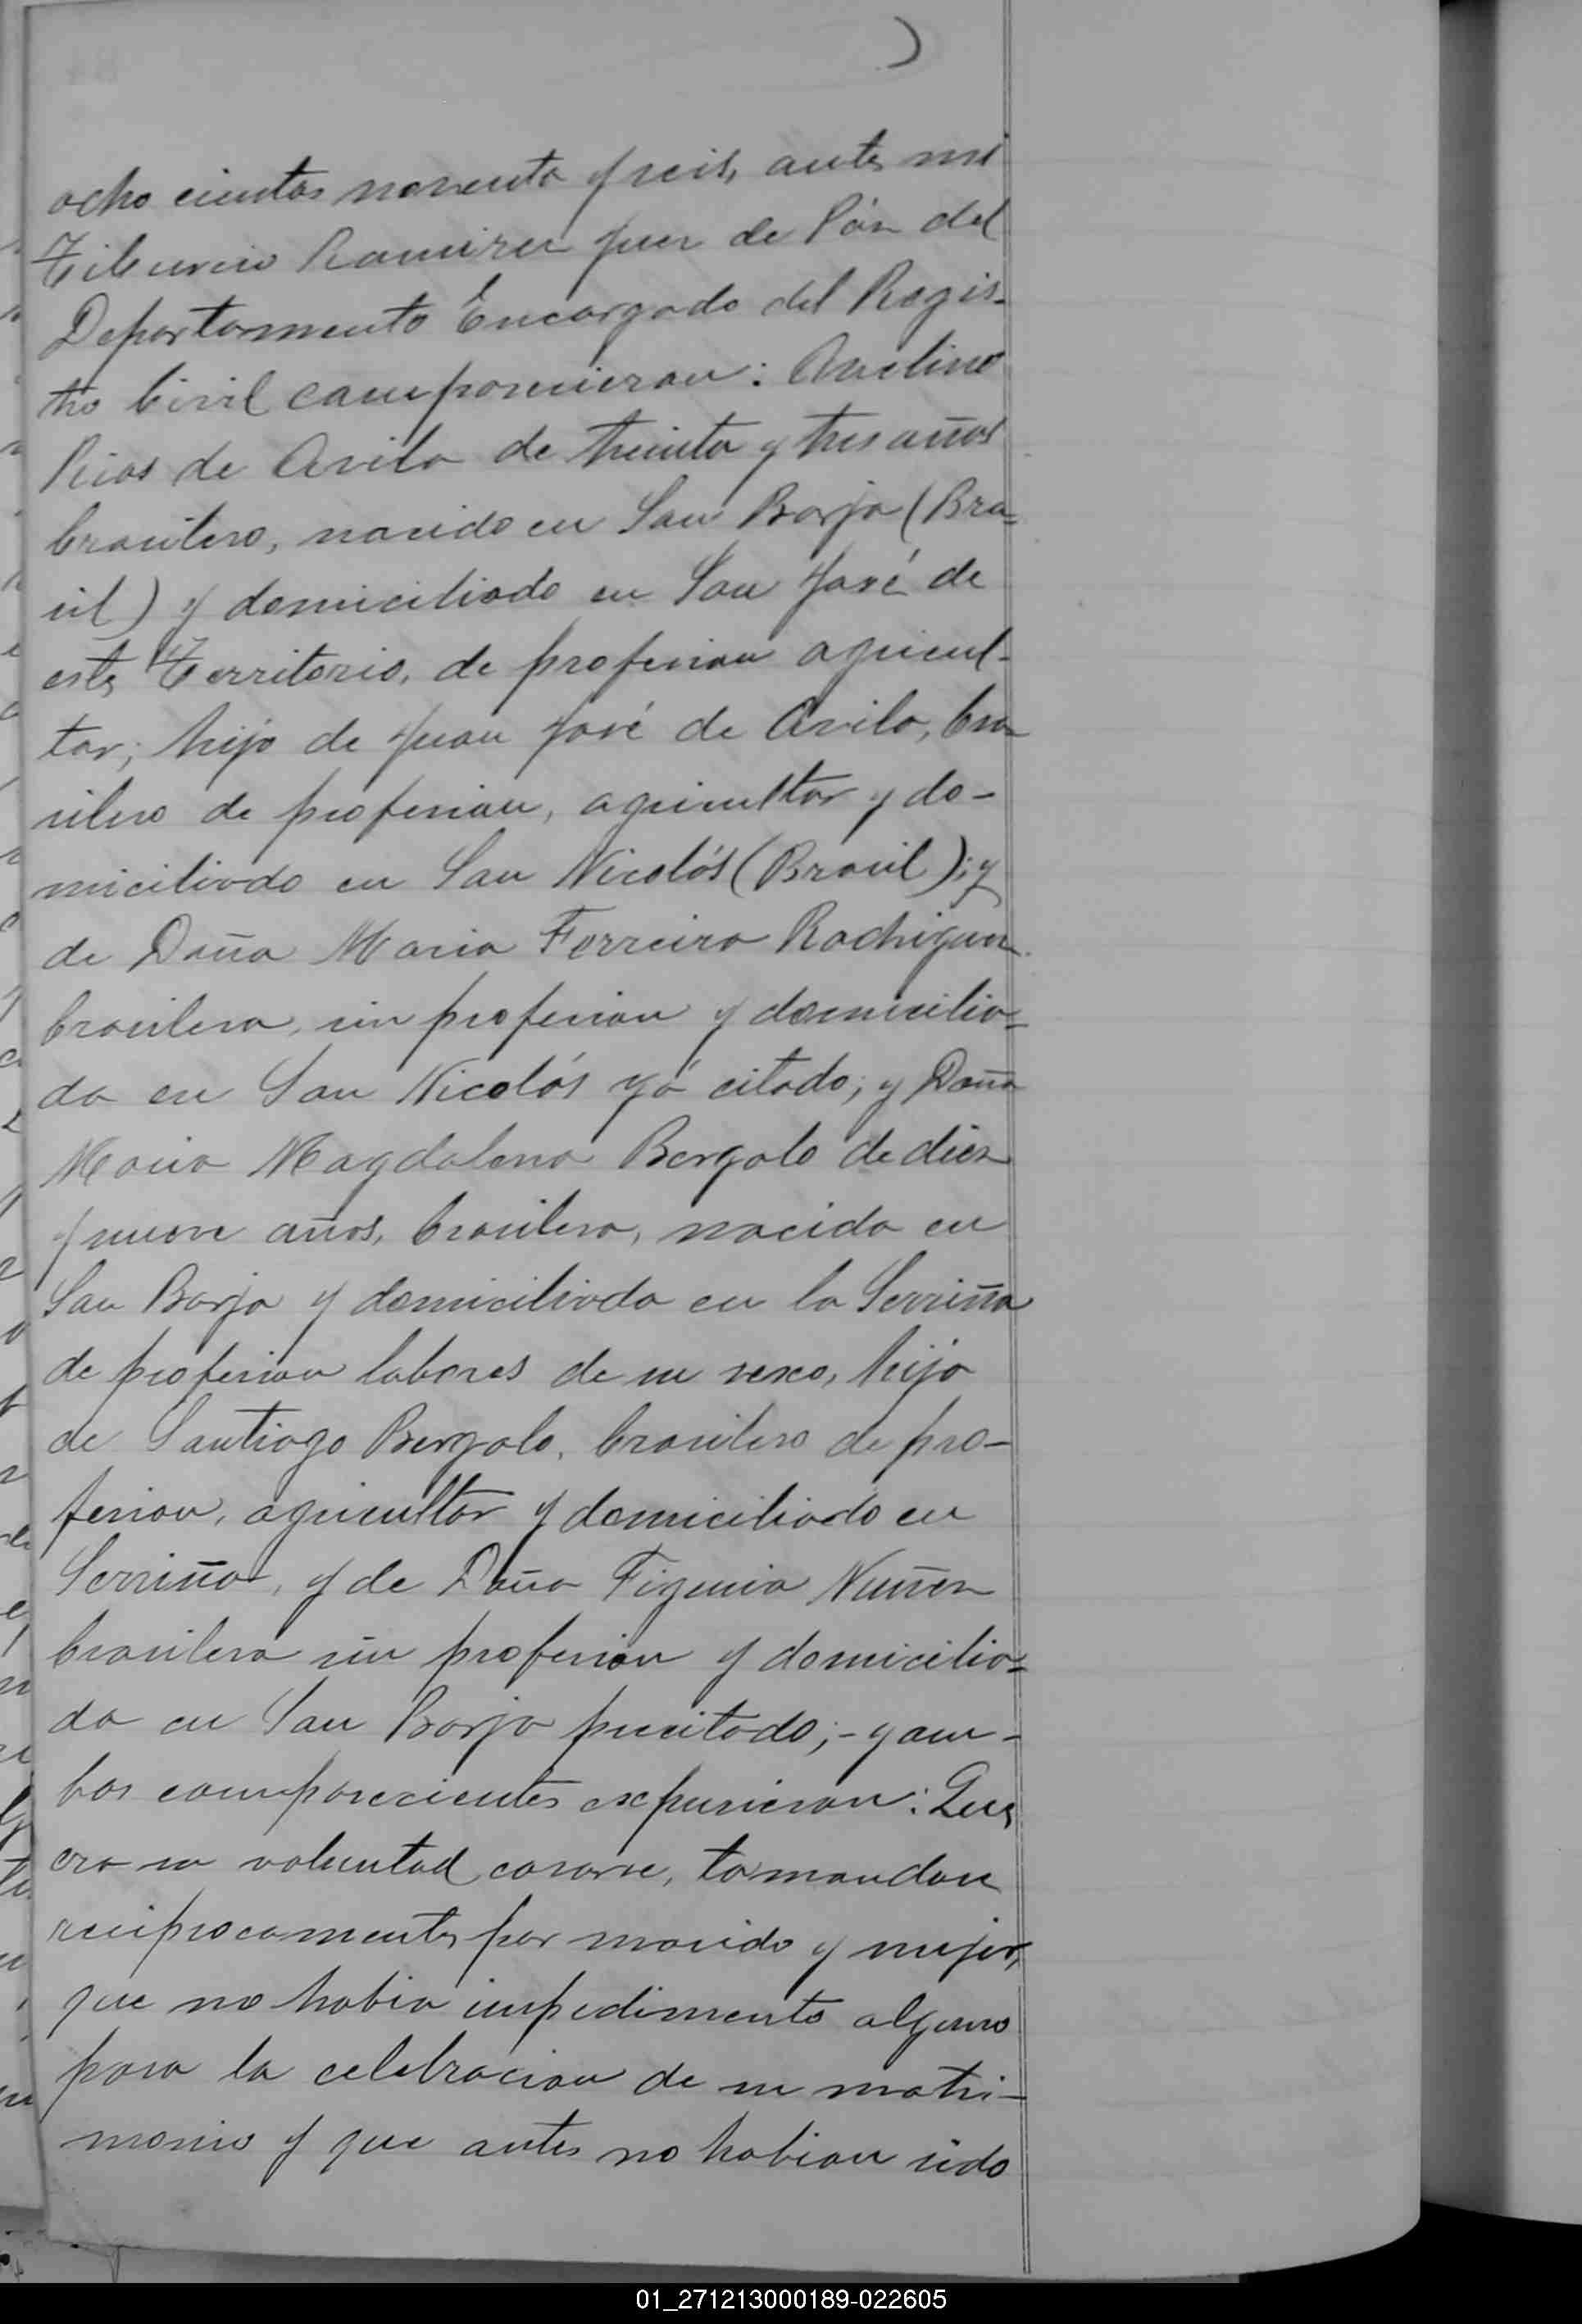 ocho cientos noventa y seis, ante mi
Tiburcio Ramirez Juez de Páz del
Departamento Encargado del Regis-
tro Civil comparecieron: Avelino
Rios de Avila de treinta y tres años
brasilero, nacido en San Borja (Bra-
sil) y domiciliado en San José de
este Territorio, de profesion agricul-
tor; hijo de Juan José de Avila, bra-
silero de profesion, agricultor y do-
miciliado en San Nicolás (Brasil); y
de Doña Maria Ferreira Rodriguez
brasilera, sin profesion y domicilia-
da en San Nicolás yá citado; y Doña
Maria Magdalena Bergalo de diez
y nueve años, brasilera, nacida en
San Borja y domiciliada en la Serriña
de profesion labores de su sexo, hija
de Santiago Bergalo, brasilero de pro-
fesion, agricultor y domiciliado en
Serriña, y de Doña Figenia Nuñez
brasilera sin profesion y domicilia-
da en San Borja precitado;- y am-
bos comparecientes expusieron: Que
era su voluntad casarse, tomandose
reciprocamente por marido y mujer,
que no habia impedimento alguno
para la celebracion de su matri-
monio y que antes no habian sido
01_271213000189-022605